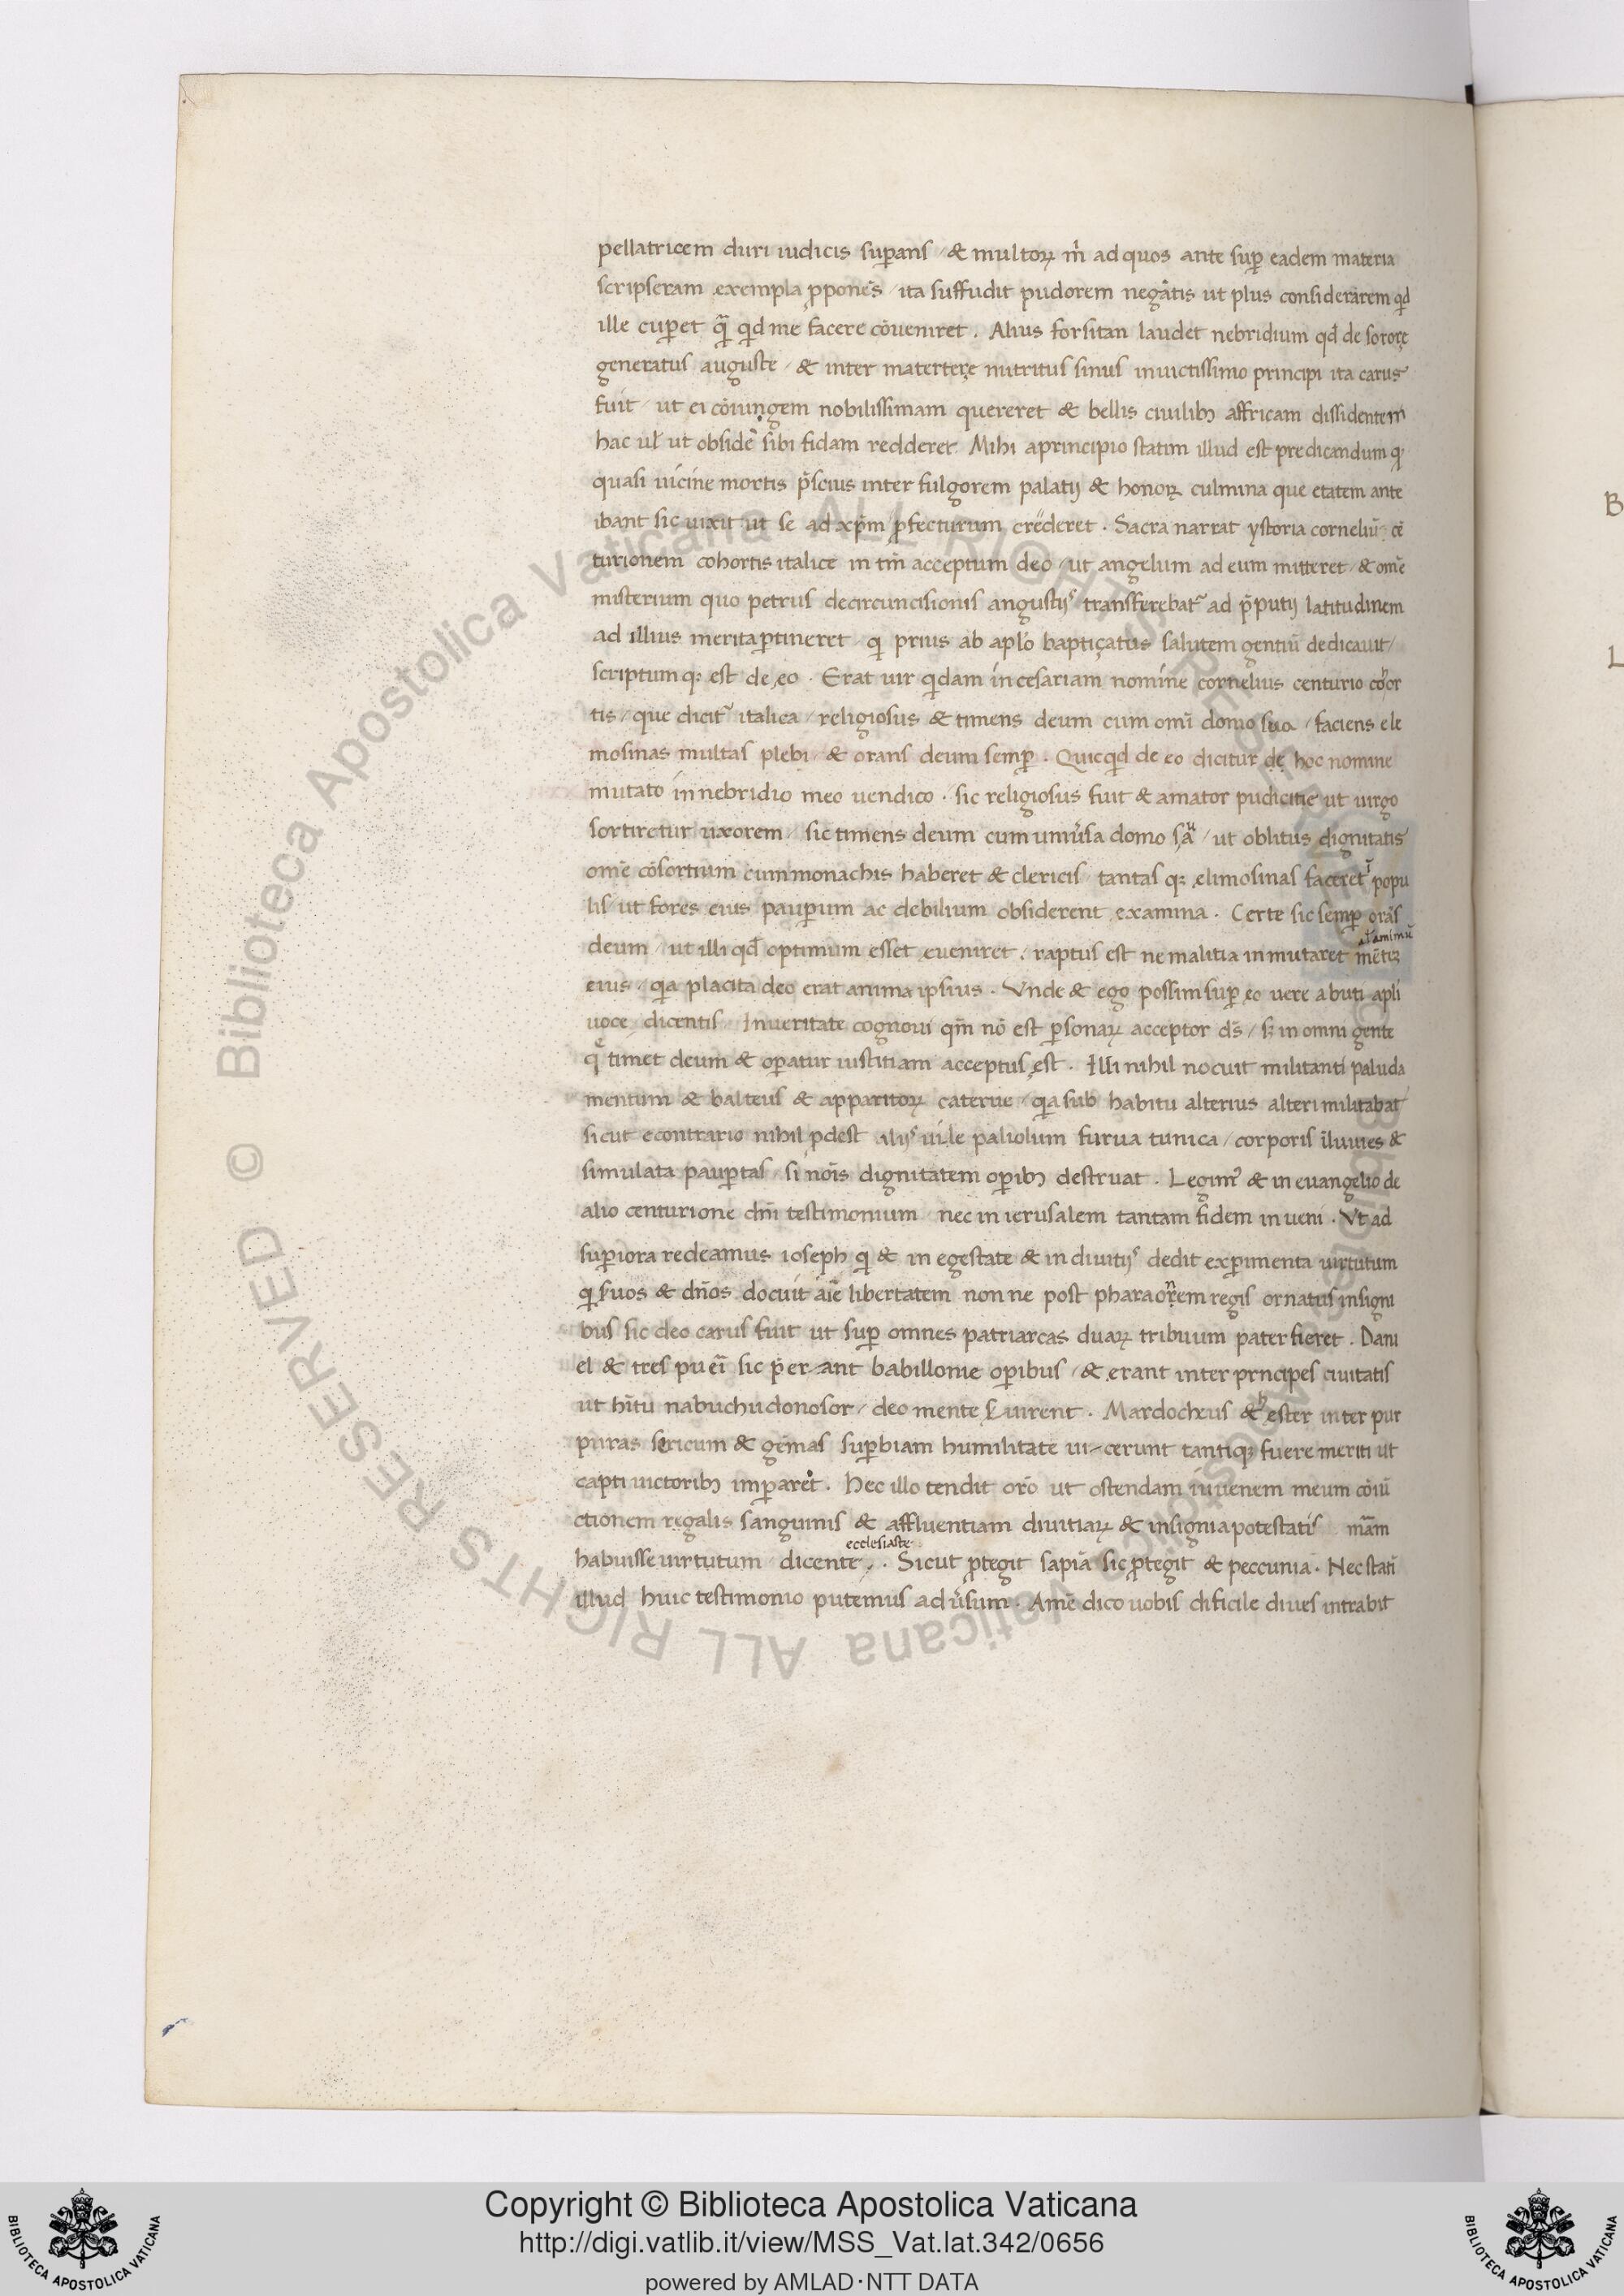 pellatricem duri iudicis suꝑans / & multoꝝ m̊ ad quos ante suꝑ eadem materia
scripseram exempla ꝓponēs / ita suffudit pudorem negātis ut plus considerarem qd
ille cuꝑet q̃ꝫ qd me facere cōueniret . Alius forsitan laudet nebridium qd̄ de sorore
generatus auguste / & inter matertere nutritus sinus inuictissimo principi ita carus
fuit / ut ei cōiungem nobilissimam quereret & bellis ciuilibꝫ affricam dissidentem
hac ul̓ ut obside sibi fidam redderet . Mihi aprincipio statim illud est predicandum qꝫ
quasi uicine mortis p̄scius inter fulgorem palatij & honoꝝ culmina que etatem ante
ibant sic uixit ut se ad xp̄m ꝓfecturum crederet . Sacra narrat ystoria corneliū cē
turionem cohortis italice in tm̄ acceptum deo / ut angelum ad eum mitteret / & om̄e
misterium quo petrus decircuncisionis angustijs transferebat̃ ad p̄putij latitudinem
ad illius merita ꝑtineret / q̇ prius ab ap̄lo baptiçatus salutem gentiū dedicauit /
scriptum qꝫ est de eo . Erat uir q̇dam in cesariam nomine cornelius centurio cohor
tis / que dicit̃ italica / religiosus & timens deum cum omī domo sua / faciens ele
mosinas multas plebi / & orans deum semꝑ . Quicq̇d de eo dicitur de hoc nomine
mutato in nebridio meo uendico . sic religiosus fuit & amator pudicitie ut uirgo
sortiretur uxorem / sic timens deum cum uniu̓sa domo sua / ut oblitus dignitatis
om̄e cōsortium cum monachis haberet & clericis / tantas qꝫ elimosinas faceret ī popu
lis ut fores eius pauꝑum ac debilium obsiderent examina . Certe sic semꝑ orās
deum / ut illi qd̄ optimum esset eueniret . raptus est ne malitia inmutaret mētē
al̓ animū
eius / q̇a placita deo erat anima ipsius . Vnde & ego possim suꝑ eo uere abuti apl̄i
uoce / dicentis Inueritate cognoui qm̄ nō est ꝑsonaꝝ acceptor ds̄ / sꝫ in omni gente
q̇ timet deum & oꝑatur iustitiam acceptus est . Illi nihil nocuit militanti paluda
mentum & balteus & apparitoꝝ caterue / q̇a sub habitu alterius alteri militabat
sicut econtrario nihil ꝓdest alijs uile paliolum furua tunica / corporis illuuies &
simulata pauꝑtas / si nōis dignitatem oꝑibꝫ destruat . Legimꝰ & in euangelio de
alio centurione dn̄i testimonium nec in ierusalem tantam fidem inueni . Vt ad
suꝑiora redeamus ioseph q̇ & in egestate & in diuitijs dedit exꝑimenta uirtutum
q̇ suos & dn̄os docuit aīe libertatem non ne post pharaonem regis ornatus insigni
bus sic deo carus fuit ut suꝑ omnes patriarcas duaꝝ tribuum pater fieret . Dani
el & tres pueri sic p̄erant babillonie oꝑibus / & erant inter prncipes ciuitatis
ut hītu nabuchudonosor / deo mente suirent . Mardocheus & hester inter pur
puras sericum & gēmas suꝑbiam humilitate uicerunt tantiqꝫ fuere meriti ut
capti uictoribꝫ imꝑarēt . Hec illo tendit orō ut ostendam iuuenem meum cōiū
ctionem regalis sanguinis & affluentiam diuitiaꝝ & insignia potestatis mām
habuisse uirtutum dicente ecclesiaste . Sicut ꝓtegit sapiā sic ꝓtegit & peccunia . Nec statī
illud huic testimonio putemus adu̓sum . Amē dico uobis dificile diues intrabit
© Biblioteca Apostolica Vaticana ALL RIGHTS RESERVED
Copyright © Biblioteca Apostolica Vaticana
http://digi.vatlib.it/view/MSS_Vat.lat.342/0656
powered by AMLAD·NTT DATA
BIBLIOTECA APOSTOLICA VATICANA
BIBLIOTECA APOSTOLICA VATICANA